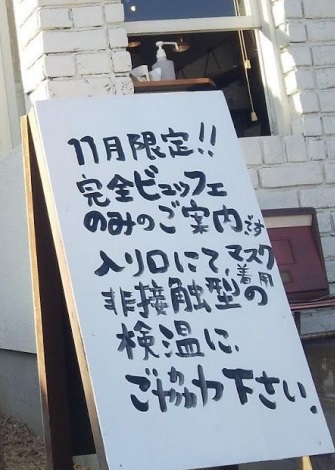 11月限定!!
完全ビュッフェ
のみのご案内です
入り口にて、マスク着用
非接触型の
検温に、
ご協力下さい。